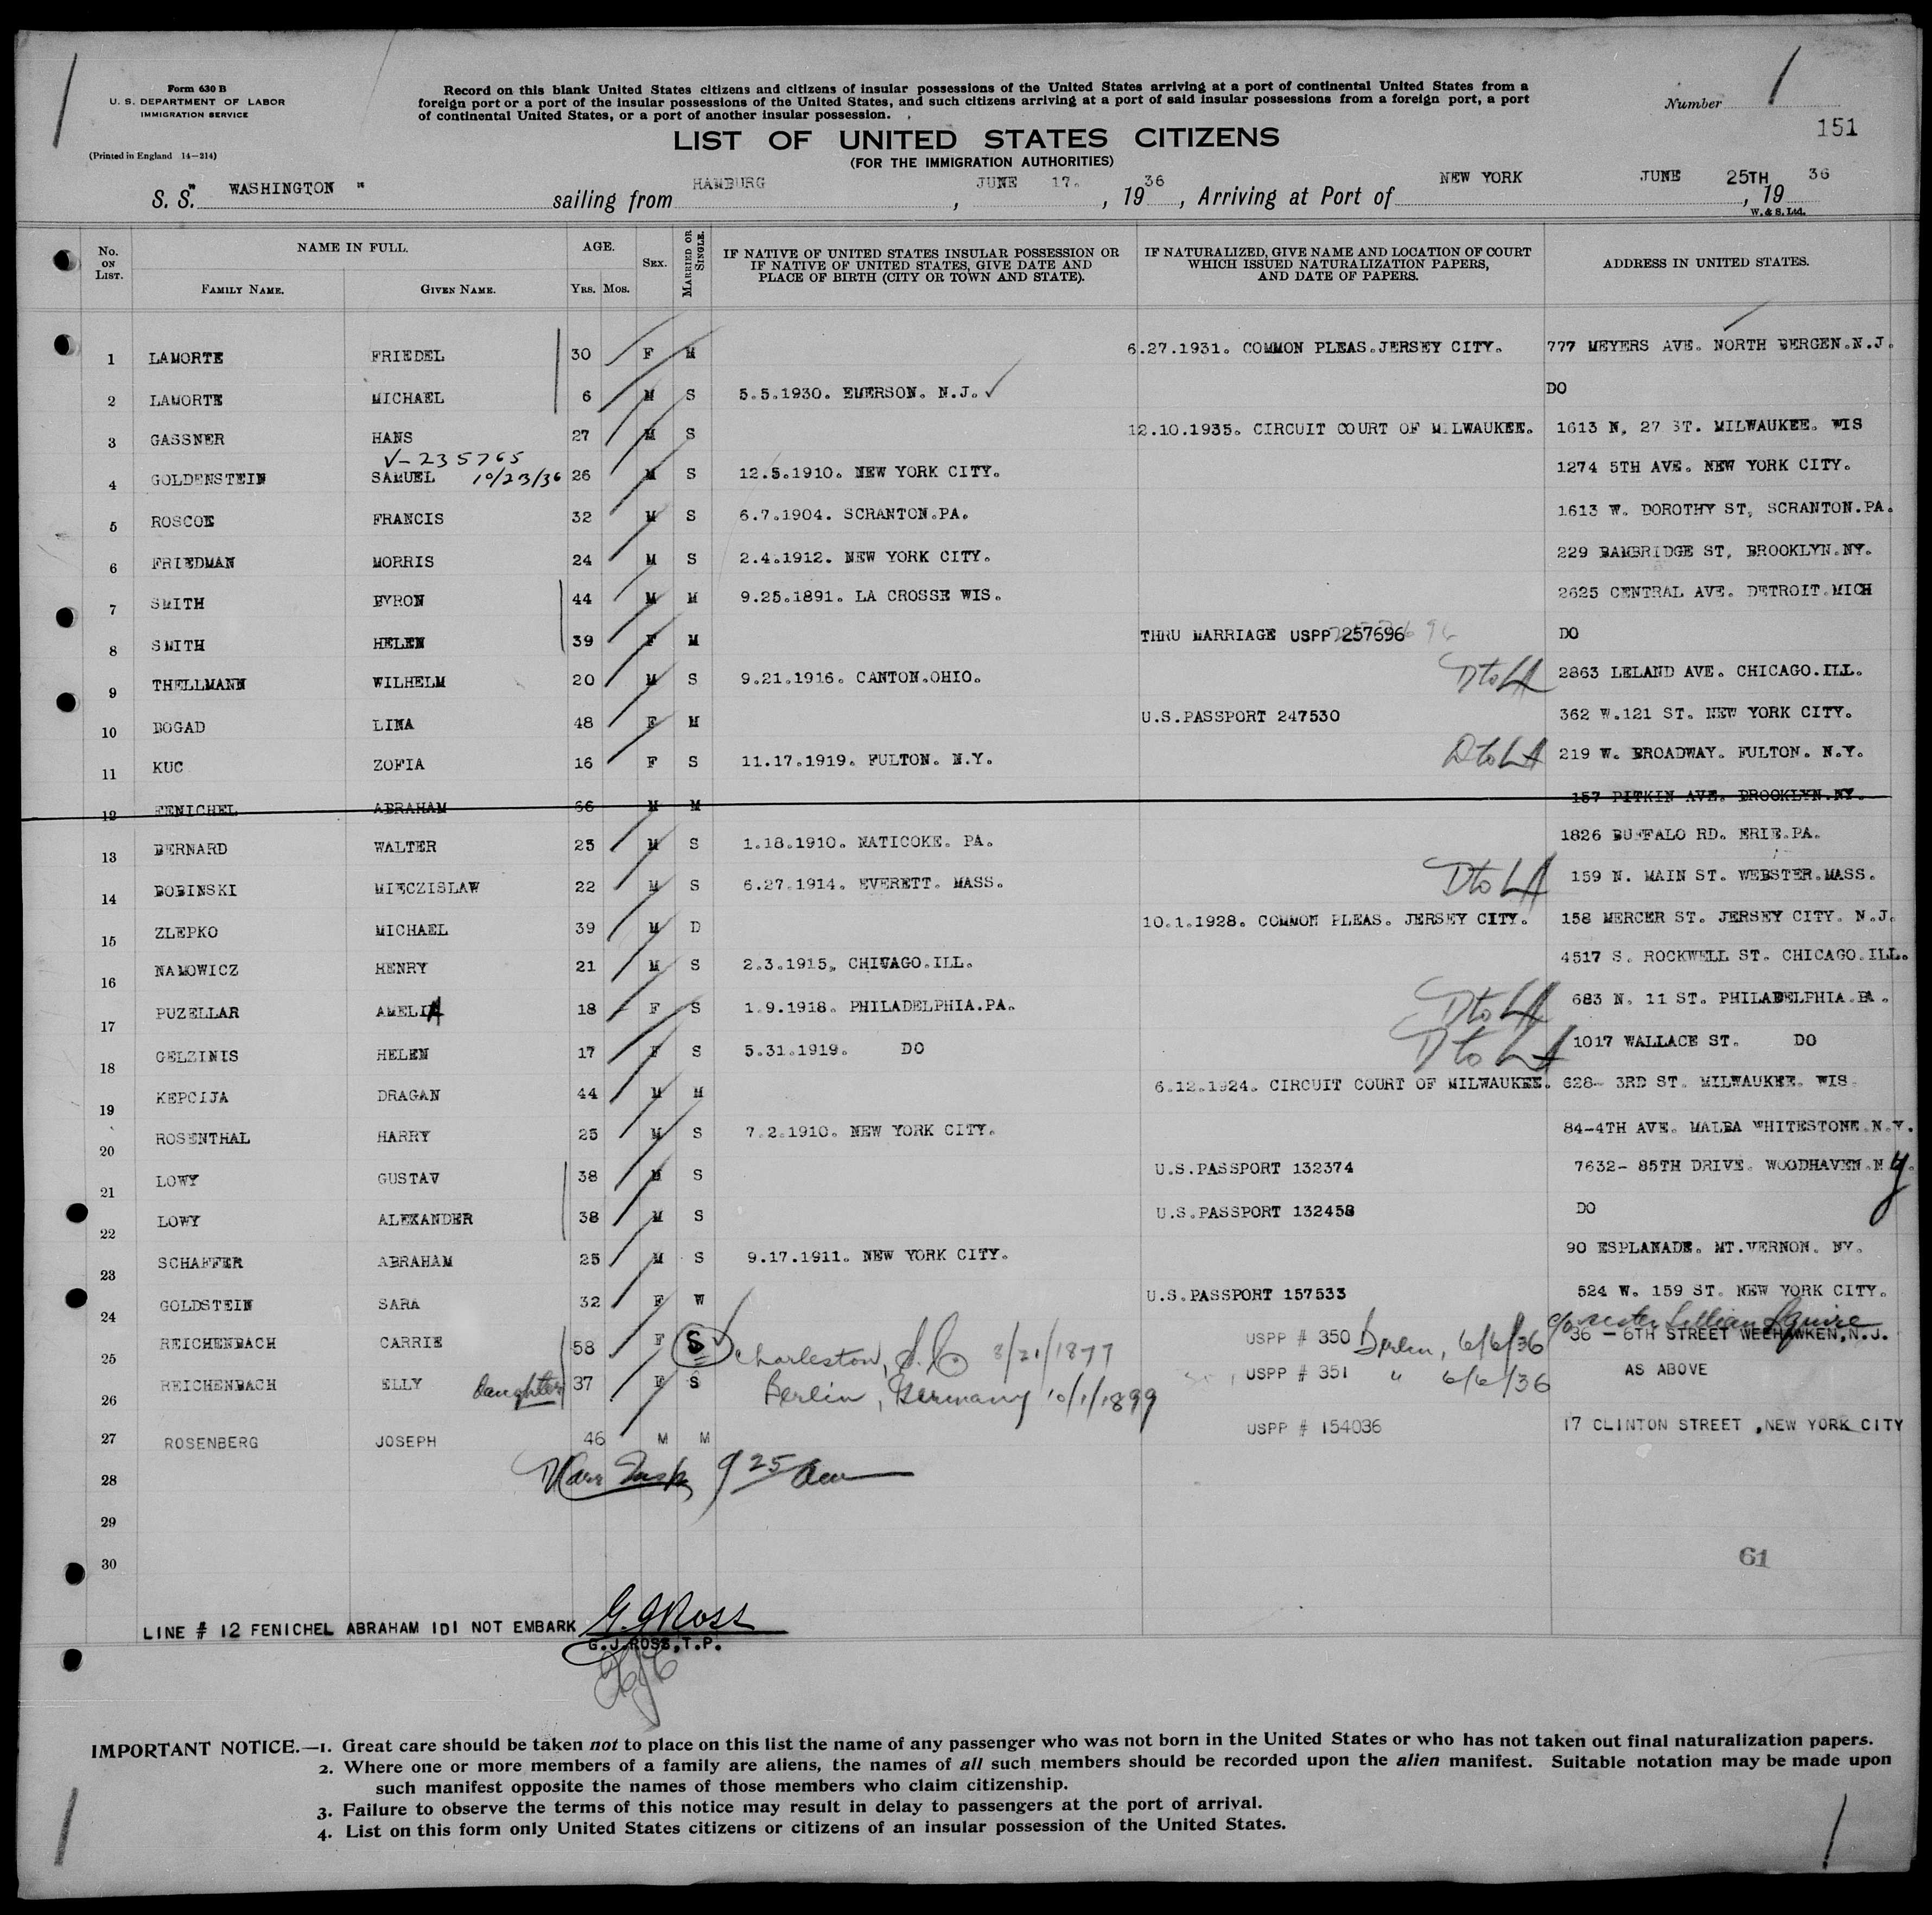 Form 630 B
U. S. DEPARTMENT OF LABOR
IMMIGRATION SERVICE
(Printed in England 14—214)
Record on this blank United States citizens and citizens of insular possessions of the United States arriving at a port of continental United States from a
foreign port or a port of the insular possessions of the United States, and such citizens arriving at a port of said insular possessions from a foreign port, a port
of continental United States, or a port of another insular possession.
Number 1
151
LIST OF UNITED STATES CITIZENS
(FOR THE IMMIGRATION AUTHORITIES)
S. S. " WASHINGTON " sailing from HAMBURG, JUNE 17., 1936, Arriving at Port of NEW YORK JUNE 25TH, 1936
W. & S. Ltd.
No. ON LIST. NAME IN FULL. FAMILY NAME. GIVEN NAME. AGE. YRS. MOS. SEX. MARRIED OR SINGLE. IF NATIVE OF UNITED STATES INSULAR POSSESSION OR IF NATIVE OF UNITED STATES, GIVE DATE AND PLACE OF BIRTH (CITY OR TOWN AND STATE). IF NATURALIZED, GIVE NAME AND LOCATION OF COURT WHICH ISSUED NATURALIZATION PAPERS, AND DATE OF PAPERS. ADDRESS IN UNITED STATES.
1 LAMORTE FRIEDEL 30 F M 6.27.1931. COMMON PLEAS.JERSEY CITY. 777 MEYERS AVE. NORTH BERGEN.N.J.
2 LAMORTE MICHAEL 6 M S 5.5.1930. EMERSON. N.J. ✓ DO
3 GASSNER HANS 27 M S 12.10.1935. CIRCUIT COURT OF MILWAUKEE. 1613 N. 27 ST. MILWAUKEE. WIS
V-235765
4 GOLDENSTEIN SAMUEL 10/23/36 26 M S 12.5.1910. NEW YORK CITY. 1274 5TH AVE. NEW YORK CITY.
5 ROSCOE FRANCIS 32 M S 6.7.1904. SCRANTON.PA. 1613 W. DOROTHY ST, SCRANTON.PA.
6 FRIEDMAN MORRIS 24 M S 2.4.1912. NEW YORK CITY. 229 BAMBRIDGE ST, BROOKLYN.NY.
7 SMITH BYRON 44 M M 9.25.1891. LA CROSSE WIS. 2625 CENTRAL AVE. DETROIT.MICH
8 SMITH HELEN 39 F M THRU MARRIAGE USPP 257696 DO
9 THELLMANN WILHELM 20 M S 9.21.1916. CANTON.OHIO. D to LA 2863 LELAND AVE. CHICAGO.ILL.
10 BOGAD LINA 48 F M U.S.PASSPORT 247530 362 W.121 ST. NEW YORK CITY.
11 KUC ZOFIA 16 F S 11.17.1919. FULTON. N.Y. D to LA 219 W. BROADWAY. FULTON. N.Y.
12 FENICHEL ABRAHAM 66 M M 157 PITKIN AVE. BROOKLYN.NY.
13 BERNARD WALTER 25 M S 1.18.1910. NATICOKE. PA. 1826 BUFFALO RD. ERIE.PA.
14 BOBINSKI MIECZISLAW 22 M S 6.27.1914. EVERETT. MASS. D to LA 159 N. MAIN ST. WEBSTER.MASS.
15 ZLEPKO MICHAEL 39 M D 10.1.1928. COMMON PLEAS. JERSEY CITY. 158 MERCER ST. JERSEY CITY. N.J.
16 NAMOWICZ HENRY 21 M S 2.3.1915, CHICAGO.ILL. 4517 S. ROCKWELL ST. CHICAGO.ILL.
17 PUZELLAR AMELIA 18 F S 1.9.1918. PHILADELPHIA.PA. D to LA 683 N. 11 ST. PHILADELPHIA.PA.
18 GELZINIS HELEN 17 F S 5.31.1919. DO D to LA 1017 WALLACE ST. DO
19 KEPCIJA DRAGAN 44 M M 6.12.1924. CIRCUIT COURT OF MILWAUKEE. 628- 3RD ST. MILWAUKEE. WIS.
20 ROSENTHAL HARRY 25 M S 7.2.1910. NEW YORK CITY. 84-4TH AVE. MALBA WHITESTONE.N.Y.
21 LOWY GUSTAV 38 M S U.S.PASSPORT 132374 7632- 85TH DRIVE. WOODHAVEN.N.Y.
22 LOWY ALEXANDER 38 M S U.S.PASSPORT 132458 DO
23 SCHAFFER ABRAHAM 25 M S 9.17.1911. NEW YORK CITY. 90 ESPLANADE. MT.VERNON. NY.
24 GOLDSTEIN SARA 32 F W U.S.PASSPORT 157533 524 W. 159 ST. NEW YORK CITY.
c/o sister Lillian Squire
25 REICHENBACH CARRIE 58 F S Charleston, S.C. 8/21/1877 USPP # 350 Berlin, 6/6/36 36 - 6TH STREET WEEHAWKEN,N.J.
26 REICHENBACH ELLY daughter 37 F S Berlin, Germany 10/1/1899 USPP # 351 " 6/6/36 AS ABOVE
27 ROSENBERG JOSEPH 46 M M USPP # 154036 17 CLINTON STREET ,NEW YORK CITY
28 Insp 9 25 am
29
30
61
LINE # 12 FENICHEL ABRAHAM IDI NOT EMBARK G. J Ross
G.J.ROSS,T.P.
IMPORTANT NOTICE.—1. Great care should be taken not to place on this list the name of any passenger who was not born in the United States or who has not taken out final naturalization papers.
2. Where one or more members of a family are aliens, the names of all such members should be recorded upon the alien manifest. Suitable notation may be made upon
such manifest opposite the names of those members who claim citizenship.
3. Failure to observe the terms of this notice may result in delay to passengers at the port of arrival.
4. List on this form only United States citizens or citizens of an insular possession of the United States.